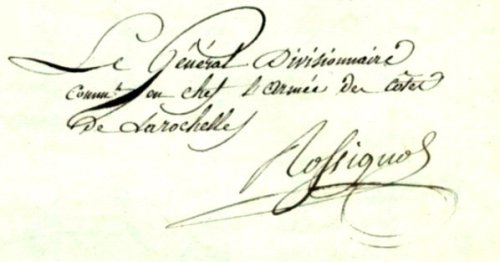 Le Général Divisionnaire
Commt. en chef l'armée des côtes
de Larochelle
Rossignol